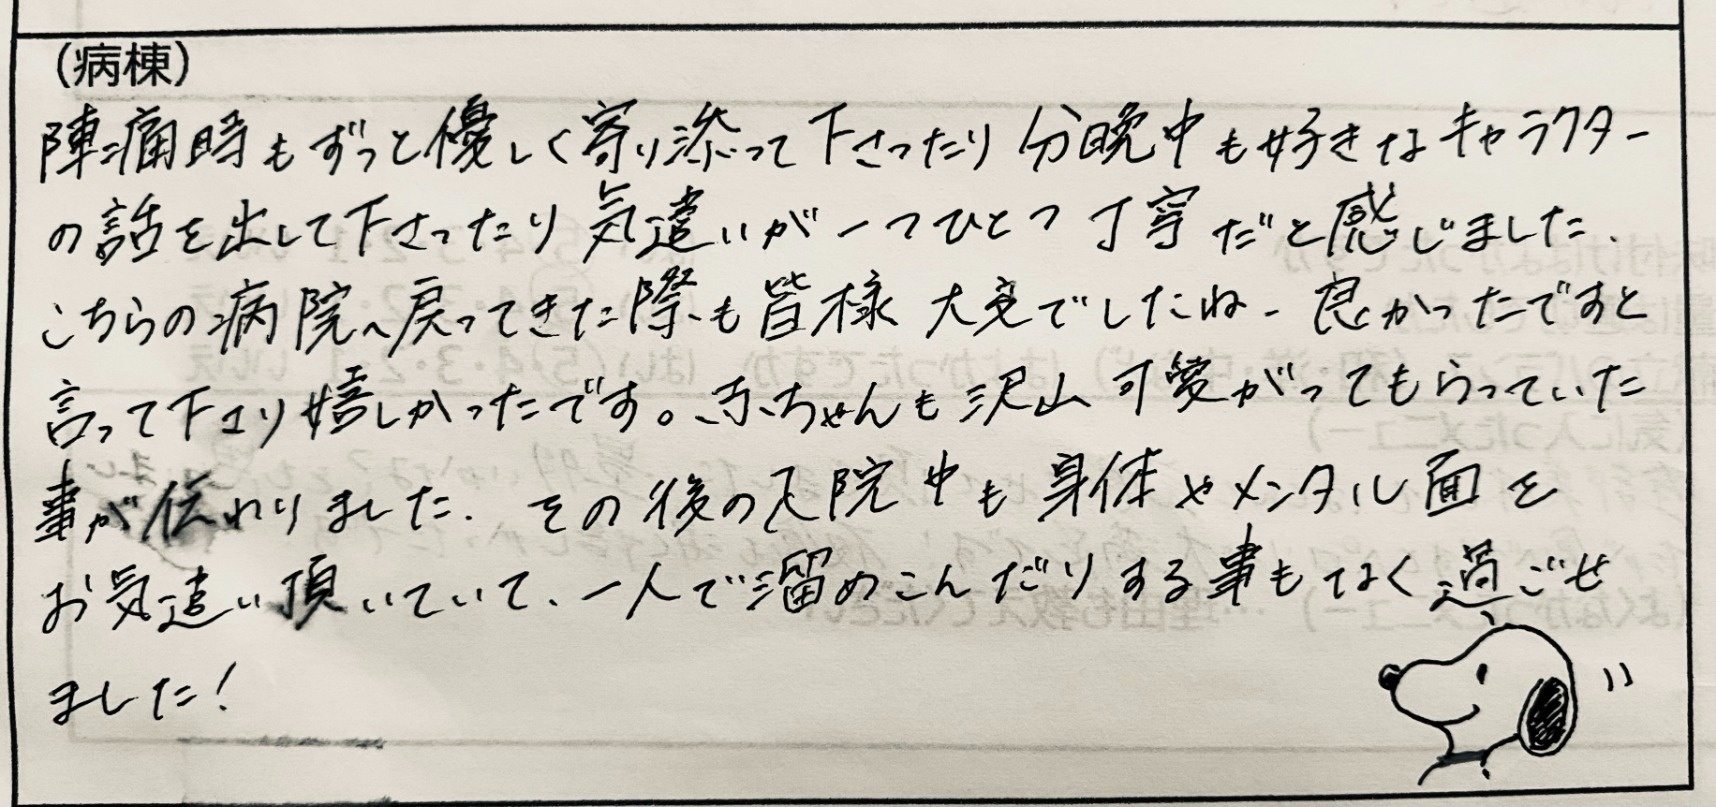 (病棟)
陣痛時もずっと優しく寄り添って下さったり 分晩中も好きなキャラクター
の話を出して下さったり 気遣いが一つひとつ丁寧だと感じました.
こちらの病院へ戻ってきた際も皆様 大変でしたね- 良かったですと
言って下さり嬉しかったです。赤ちゃんも沢山可愛がってもらっていた
事が伝わりました. その後の入院中も身体やメンタル面を
お気遣い頂いていて、一人で溜めこんだりする事もなく過ごせ
ました!